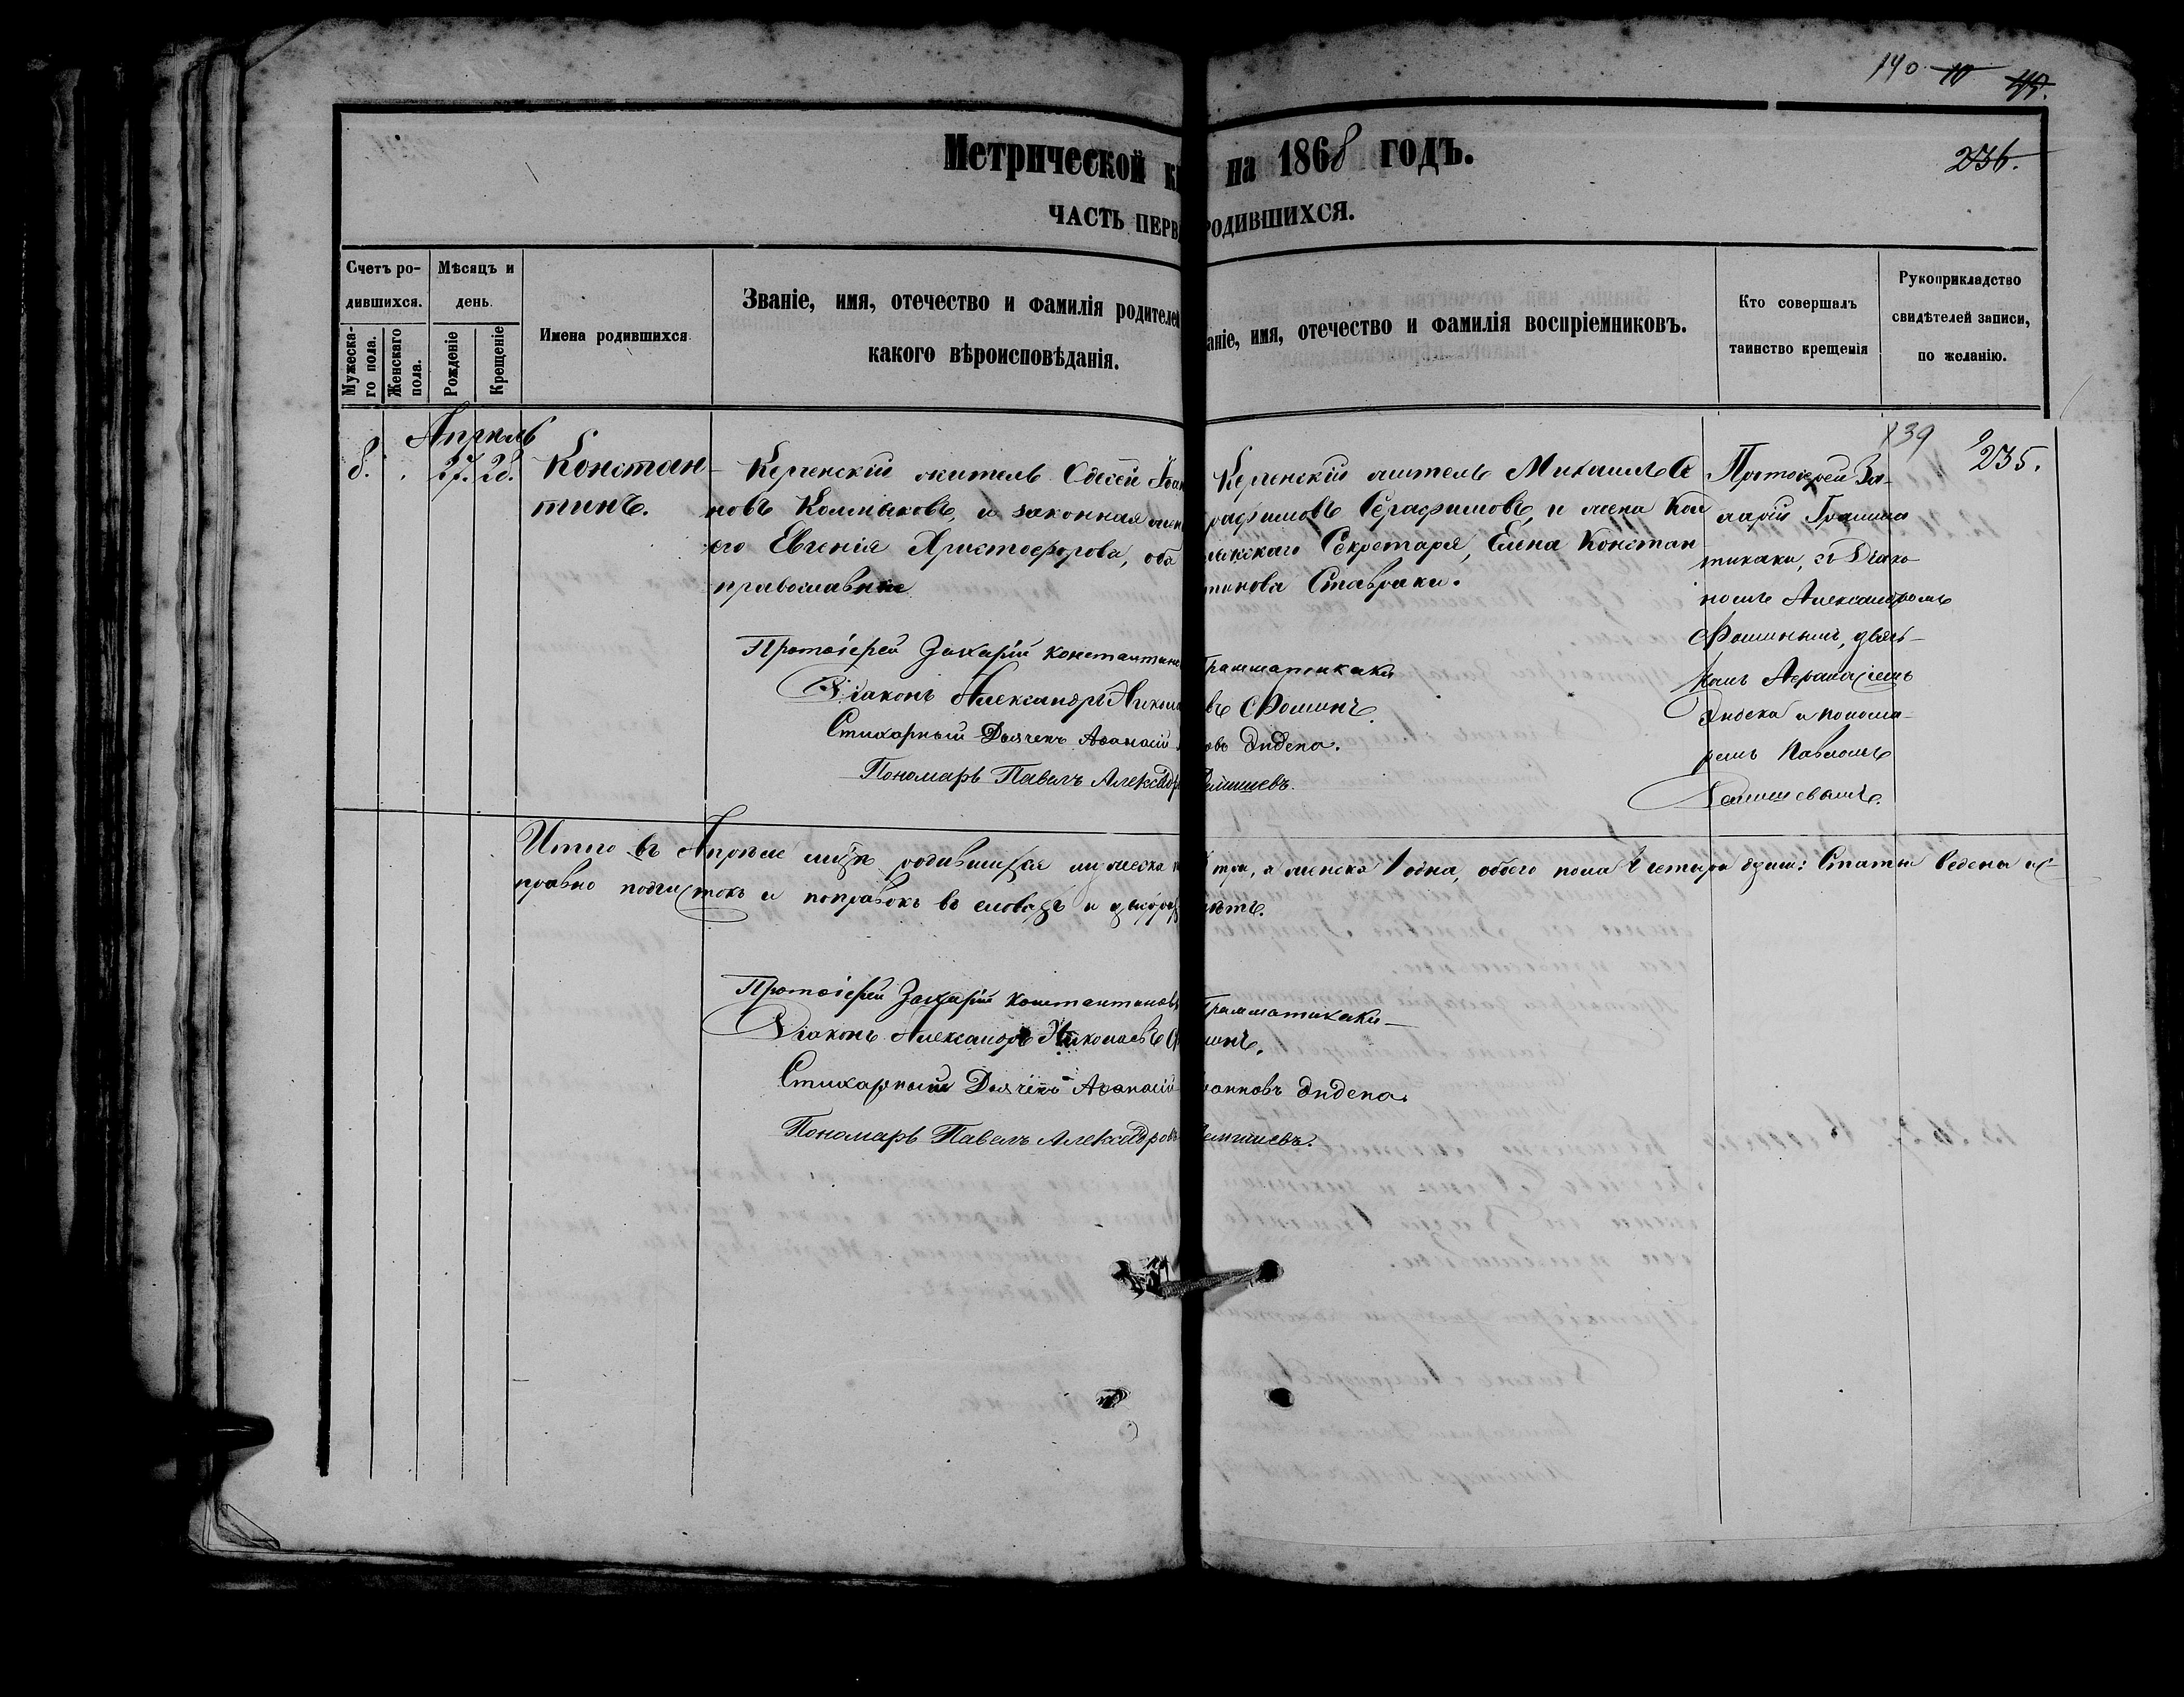 140 10 45.
Метрической к на 1868 годъ.
236.
ЧАСТЬ ПЕРВ РОДИВШИХСЯ.
Счетъ ро-
дившихся.
Мужеска-
го пола.
Женскаго
пола.
Мѣсяцъ и
день.
Рожденіе
Крещеніе
Имена родившихся
Званіе, имя, отечество и фамилія родителей
какого вѣроисповѣданія.
аніе, имя, отечество и фамилія воспріемниковъ.
Кто совершалъ
таинство крещенія
Рукоприкладство
свидѣтелей записи,
по желанію.
139 235.
Апрѣль
8. 27. 28.
Констан-
тинъ.
Керченскій житель Одесей Іоан
новъ Колпаковъ, и законная жен
его Евгенія Христофорова, оба
православные
Керченскій житель Михаилъ Се
рафимовъ Серафимовъ, и жена Кол
лежскаго Секретаря, Елена Констан
тинова Ставраки.
Протоіерей За-
харій Грамма
тикаки, съ Діако-
номъ Александромъ
Фоминымъ, дьяч-
комъ Афанасіемъ
Дидека и понома-
ремъ Павломъ
Демишевымъ.
Протоіерей Захарій Константин Грамматикаки
Діаконъ Александръ Никола въ Фоминъ.
Стихарный Дьячекъ Аѳанасій новъ Дидека.
Пономарь Павелъ Александр Демишевъ.
Итого въ Апрѣлѣ мцѣ родившихся мужеска три, а женска 1 одна, обоего пола 4 четыре души: Статьи ведены ис-
правно подчистокъ и поправокъ въ словахъ и цыфрах нѣтъ.
Протоіерей Захарій Константиновъ Грамматикаки
Діаконъ Александръ Николаевъ Ф минъ.
Стихарный Дьячекъ Аѳанасій Іоанновъ Дидека.
Пономарь Павелъ Александровъ Демишевъ.